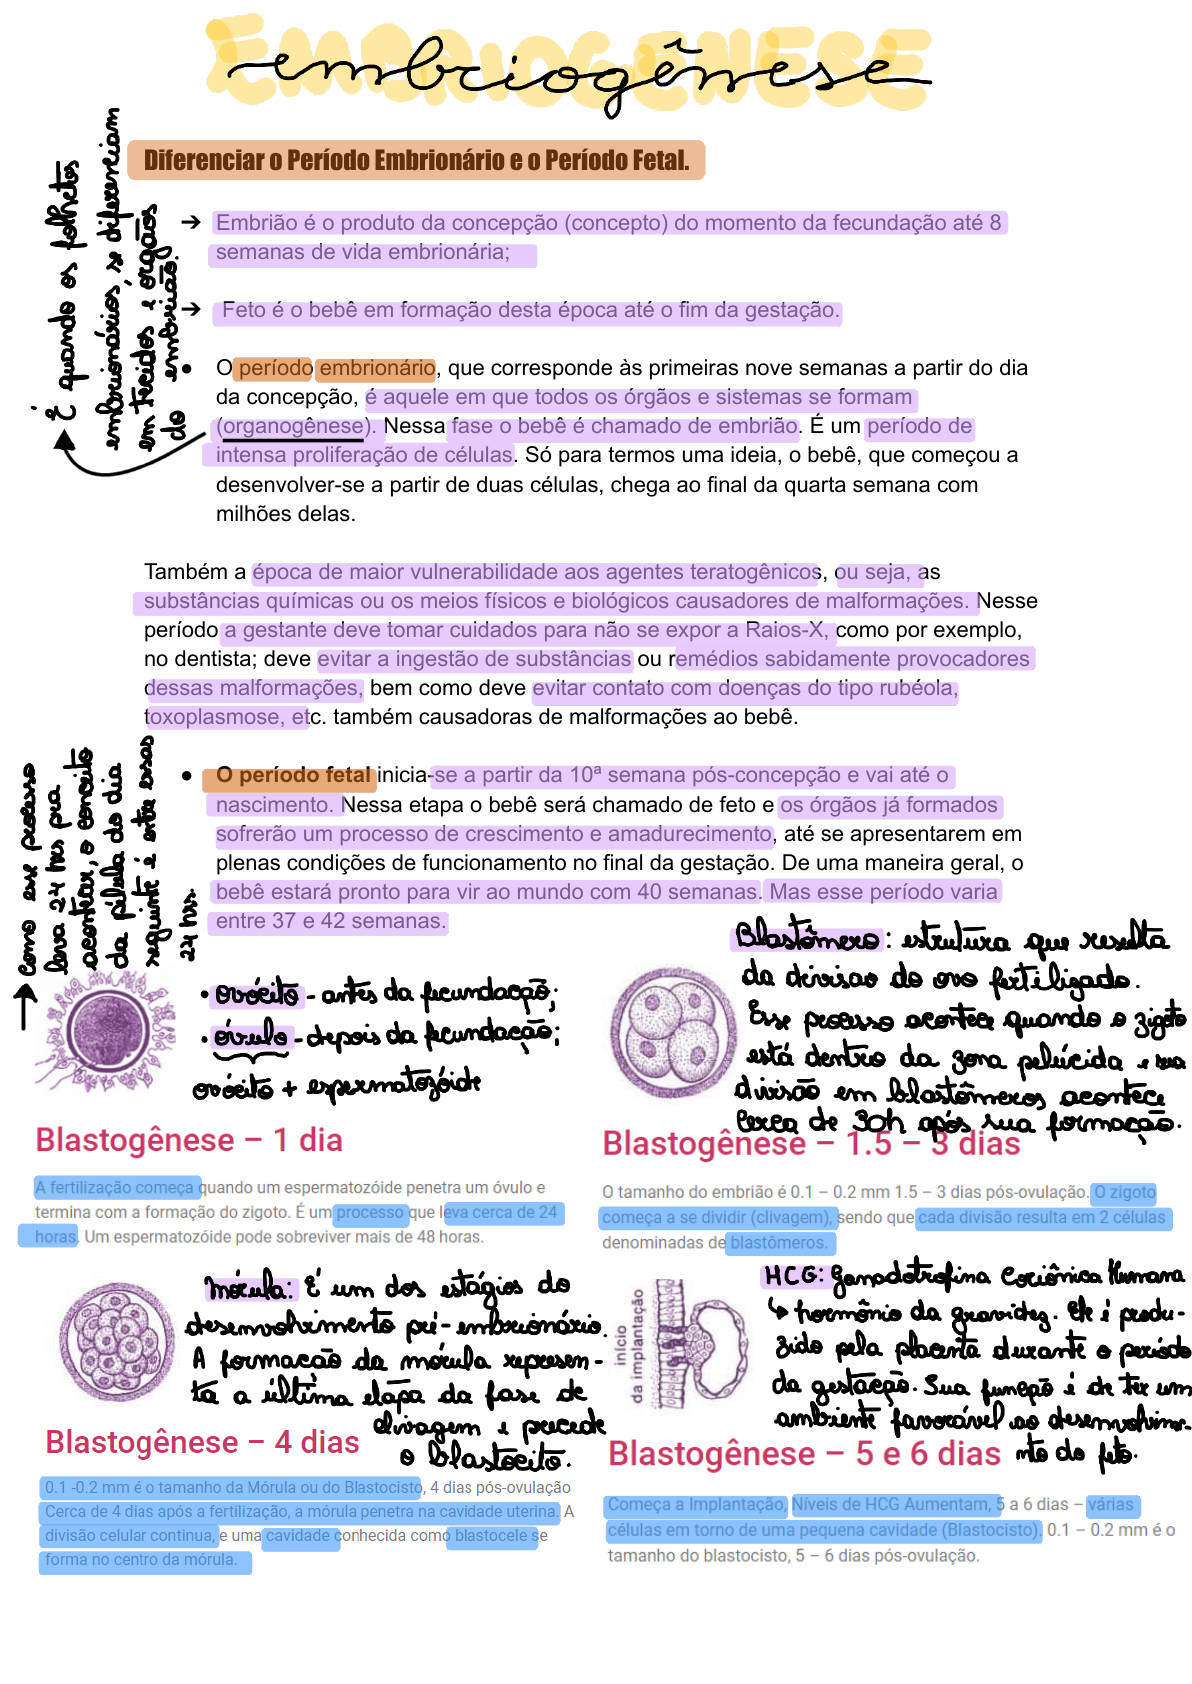 EMBRIOGÊNESE
embriogênese
Diferenciar o Período Embrionário e o Período Fetal.
É quando os folhetos
embrionários, se diferenciam
em tecidos e orgãos
do embrião.
➔ Embrião é o produto da concepção (concepto) do momento da fecundação até 8
semanas de vida embrionária;
➔ Feto é o bebê em formação desta época até o fim da gestação.
● O período embrionário, que corresponde às primeiras nove semanas a partir do dia
da concepção, é aquele em que todos os órgãos e sistemas se formam
(organogênese). Nessa fase o bebê é chamado de embrião. É um período de
intensa proliferação de células. Só para termos uma ideia, o bebê, que começou a
desenvolver-se a partir de duas células, chega ao final da quarta semana com
milhões delas.
Também a época de maior vulnerabilidade aos agentes teratogênicos, ou seja, as
substâncias químicas ou os meios físicos e biológicos causadores de malformações. Nesse
período a gestante deve tomar cuidados para não se expor a Raios-X, como por exemplo,
no dentista; deve evitar a ingestão de substâncias ou remédios sabidamente provocadores
dessas malformações, bem como deve evitar contato com doenças do tipo rubéola,
toxoplasmose, etc. também causadoras de malformações ao bebê.
● O período fetal inicia-se a partir da 10ª semana pós-concepção e vai até o
nascimento. Nessa etapa o bebê será chamado de feto e os órgãos já formados
sofrerão um processo de crescimento e amadurecimento, até se apresentarem em
plenas condições de funcionamento no final da gestação. De uma maneira geral, o
bebê estará pronto para vir ao mundo com 40 semanas. Mas esse período varia
entre 37 e 42 semanas.
Como esse processo
leva 24 hrs pra
acontecer, o conceito
da pílula do dia
seguinte é entre essas
24 hrs.
• ovócito - antes da fecundação;
• óvulo - depois da fecundação;
ovócito + espermatozóide
Blastogênese – 1 dia
A fertilização começa quando um espermatozóide penetra um óvulo e
termina com a formação do zigoto. É um processo que leva cerca de 24
horas. Um espermatozóide pode sobreviver mais de 48 horas.
Blastômero: estrutura que resulta
da divisao do ovo fertilizado.
Esse processo acontece quando o zigoto
está dentro da zona pelúcida e sua
divisão em blastômeros acontece
cerca de 30h após sua formação.
Blastogênese – 1.5 – 3 dias
O tamanho do embrião é 0.1 – 0.2 mm 1.5 – 3 dias pós-ovulação. O zigoto
começa a se dividir (clivagem), sendo que cada divisão resulta em 2 células
denominadas de blastômeros.
mórula: É um dos estágios do
desenvolvimento pré-embrionário.
A formação da mórula represen-
ta a última etapa da fase de
clivagem e precede
o blastocito.
Blastogênese – 4 dias
0.1 -0.2 mm é o tamanho da Mórula ou do Blastocisto, 4 dias pós-ovulação
Cerca de 4 dias após a fertilização, a mórula penetra na cavidade uterina. A
divisão celular continua, e uma cavidade conhecida como blastocele se
forma no centro da mórula.
início
da implantação
HCG: Gonodotrofina Coriônica Humana
↳ hormônio da gravidez. Ele é produ-
zido pela placenta durante o período
da gestação. Sua função é de ter um
ambiente favorável ao desenvolvime-
nto do feto.
Blastogênese – 5 e 6 dias
Começa a Implantação, Níveis de HCG Aumentam, 5 a 6 dias – várias
células em torno de uma pequena cavidade (Blastocisto). 0.1 – 0.2 mm é o
tamanho do blastocisto, 5 – 6 dias pós-ovulação.